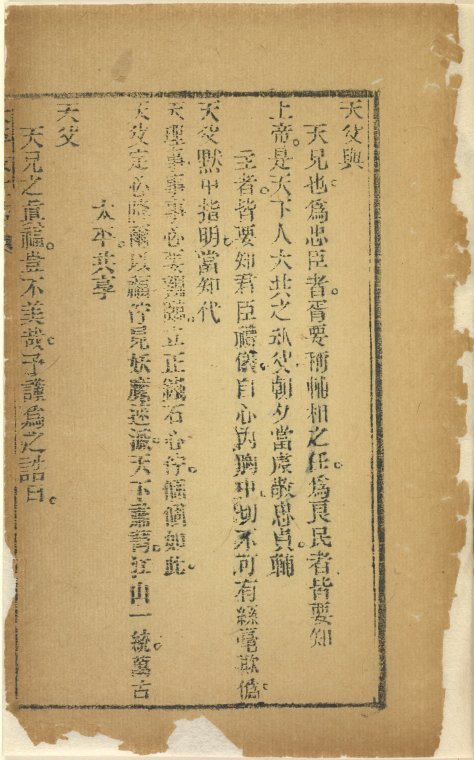 天父與
天兄也爲忠臣者。胥要稱輔相之任。爲良民者皆要知
上帝。是天下人大共之天父朝夕當虔敬忠貞輔
主者皆要知君臣禮儀。自心內胸中。切不可有絲毫欺僞。
天父默中指明。當知代
天理事。事事必要 正 石心 個個如此。
天父定必隆爾以福 見妖 迷 天下 萬 江山一統萬古
太平共享
天父
天兄之真福。豈不美哉。予謹爲之誥曰。